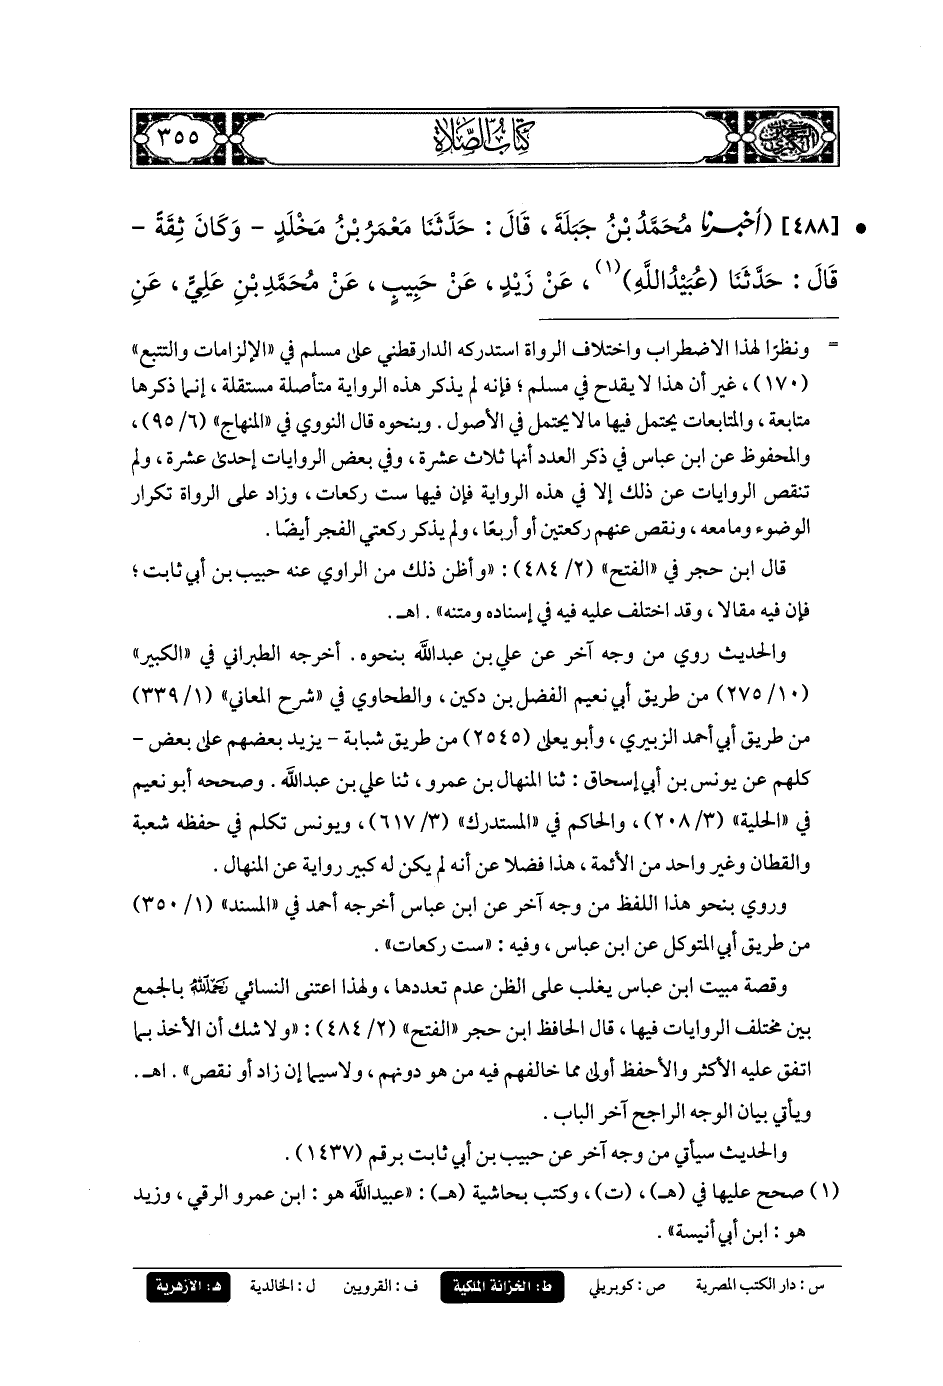 السنن الكبرى
كتاب الصلاة
٣٥٥
• [٤٨٨] (أَخْبَرَنَا مُحَمَّدُ بْنُ جَبَلَةَ ، قَالَ : حَدَّثَنَا مَعْمَرُ بْنُ مَخْلَدٍ - وَكَانَ ثِقَةً -
قَالَ : حَدَّثَنَا (عُبَيْدُ اللَّهِ)(١) ، عَنْ زَيْدٍ ، عَنْ حَبِيبٍ ، عَنْ مُحَمَّدِ بْنِ عَلِيٍّ ، عَنِ
= ونظرًا لهذا الاضطراب واختلاف الرواة استدركه الدارقطني على مسلم في «الإلزامات والتتبع»
(١٧٠) ، غير أن هذا لا يقدح في مسلم ؛ فإنه لم يذكر هذه الرواية متأصلة مستقلة ، إنما ذكرها
متابعة ، والمتابعات يحتمل فيها ما لا يحتمل في الأصول . وبنحوه قال النووي في «المنهاج» (٦/ ٩٥) ،
والمحفوظ عن ابن عباس في ذكر العدد أنها ثلاث عشرة ، وفي بعض الروايات إحدى عشرة ، ولم
تنقص الروايات عن ذلك إلا في هذه الرواية فإن فيها ست ركعات ، وزاد على الرواة تكرار
الوضوء وما معه ، ونقص عنهم ركعتين أو أربعًا ، ولم يذكر ركعتي الفجر أيضًا .
قال ابن حجر في «الفتح» (٢/ ٤٨٤) : «وأظن ذلك من الراوي عنه حبيب بن أبي ثابت ؛
فإن فيه مقالا ، وقد اختلف عليه فيه في إسناده ومتنه» . اهـ .
والحديث روي من وجه آخر عن علي بن عبدالله بنحوه . أخرجه الطبراني في «الكبير»
(١٠/ ٢٧٥) من طريق أبي نعيم الفضل بن دكين ، والطحاوي في «شرح المعاني» (١/ ٣٣٩)
من طريق أبي أحمد الزبيري ، وأبو يعلى (٢٥٤٥) من طريق شبابة - يزيد بعضهم على بعض -
كلهم عن يونس بن أبي إسحاق : ثنا المنهال بن عمرو ، ثنا علي بن عبدالله . وصححه أبو نعيم
في «الحلية» (٣/ ٢٠٨) ، والحاكم في «المستدرك» (٣/ ٦١٧) ، ويونس تكلم في حفظه شعبة
والقطان وغير واحد من الأئمة ، هذا فضلا عن أنه لم يكن له كبير رواية عن المنهال .
وروي بنحو هذا اللفظ من وجه آخر عن ابن عباس أخرجه أحمد في «المسند» (١/ ٣٥٠)
من طريق أبي المتوكل عن ابن عباس ، وفيه : «ست ركعات» .
وقصة مبيت ابن عباس يغلب على الظن عدم تعددها ، ولهذا اعتنى النسائي رحمه الله بالجمع
بين مختلف الروايات فيها ، قال الحافظ ابن حجر «الفتح» (٢/ ٤٨٤) : «ولا شك أن الأخذ بما
اتفق عليه الأكثر والأحفظ أولى مما خالفهم فيه من هو دونهم ، ولا سيما إن زاد أو نقص» . اهـ .
ويأتي بيان الوجه الراجح آخر الباب .
والحديث سيأتي من وجه آخر عن حبيب بن أبي ثابت برقم (١٤٣٧) .
(١) صحح عليها في (هـ) ، (ت) ، وكتب بحاشية (هـ) : «عبيدالله هو : ابن عمرو الرقي ، وزيد
هو : ابن أبي أنيسة» .
س : دار الكتب المصرية ص : كوبريلي ط : الخزانة الملكية ف : القرويين ل : الخالدية هـ : الأزهرية